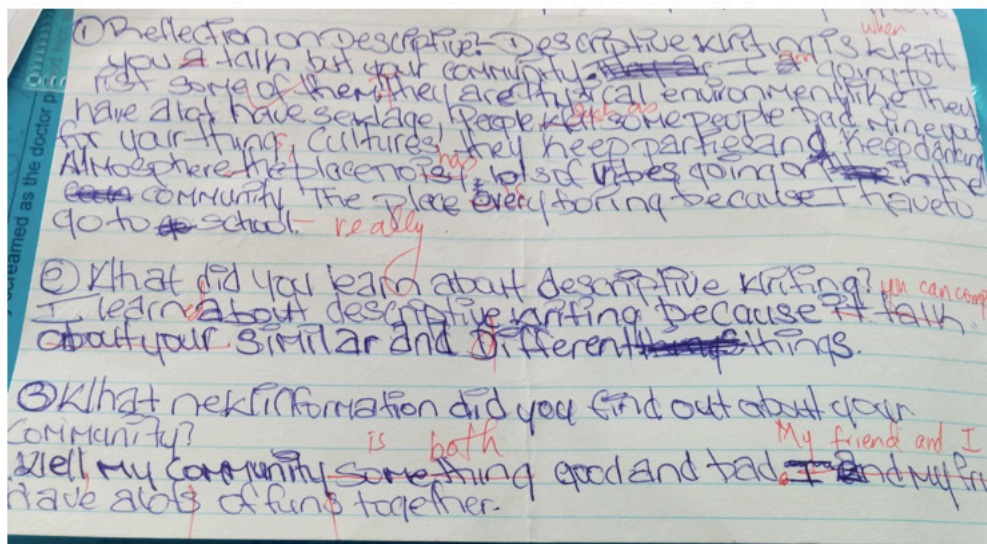 ① Reflection on Descriptive - Descriptive writing is when
you talk but your community. I am going to
list some of them they are Physical environment like they
have alot have sewage, People some people bad mine you
for your things, Cultures, they keep parties and keep dancing
Atmosphere the place has lots of vibes going on in the
community The place is very boring because I have to
go to school. - really
② What did you learn about descriptive writing? you can comp
I learn about descriptive writing because it talk
about your similar and different things.
③ What new information did you find out about your
Community?
is both My friend and I
Well, my Community something good and bad. I and my fri
have alots of funs together.
screamed as the doctor p